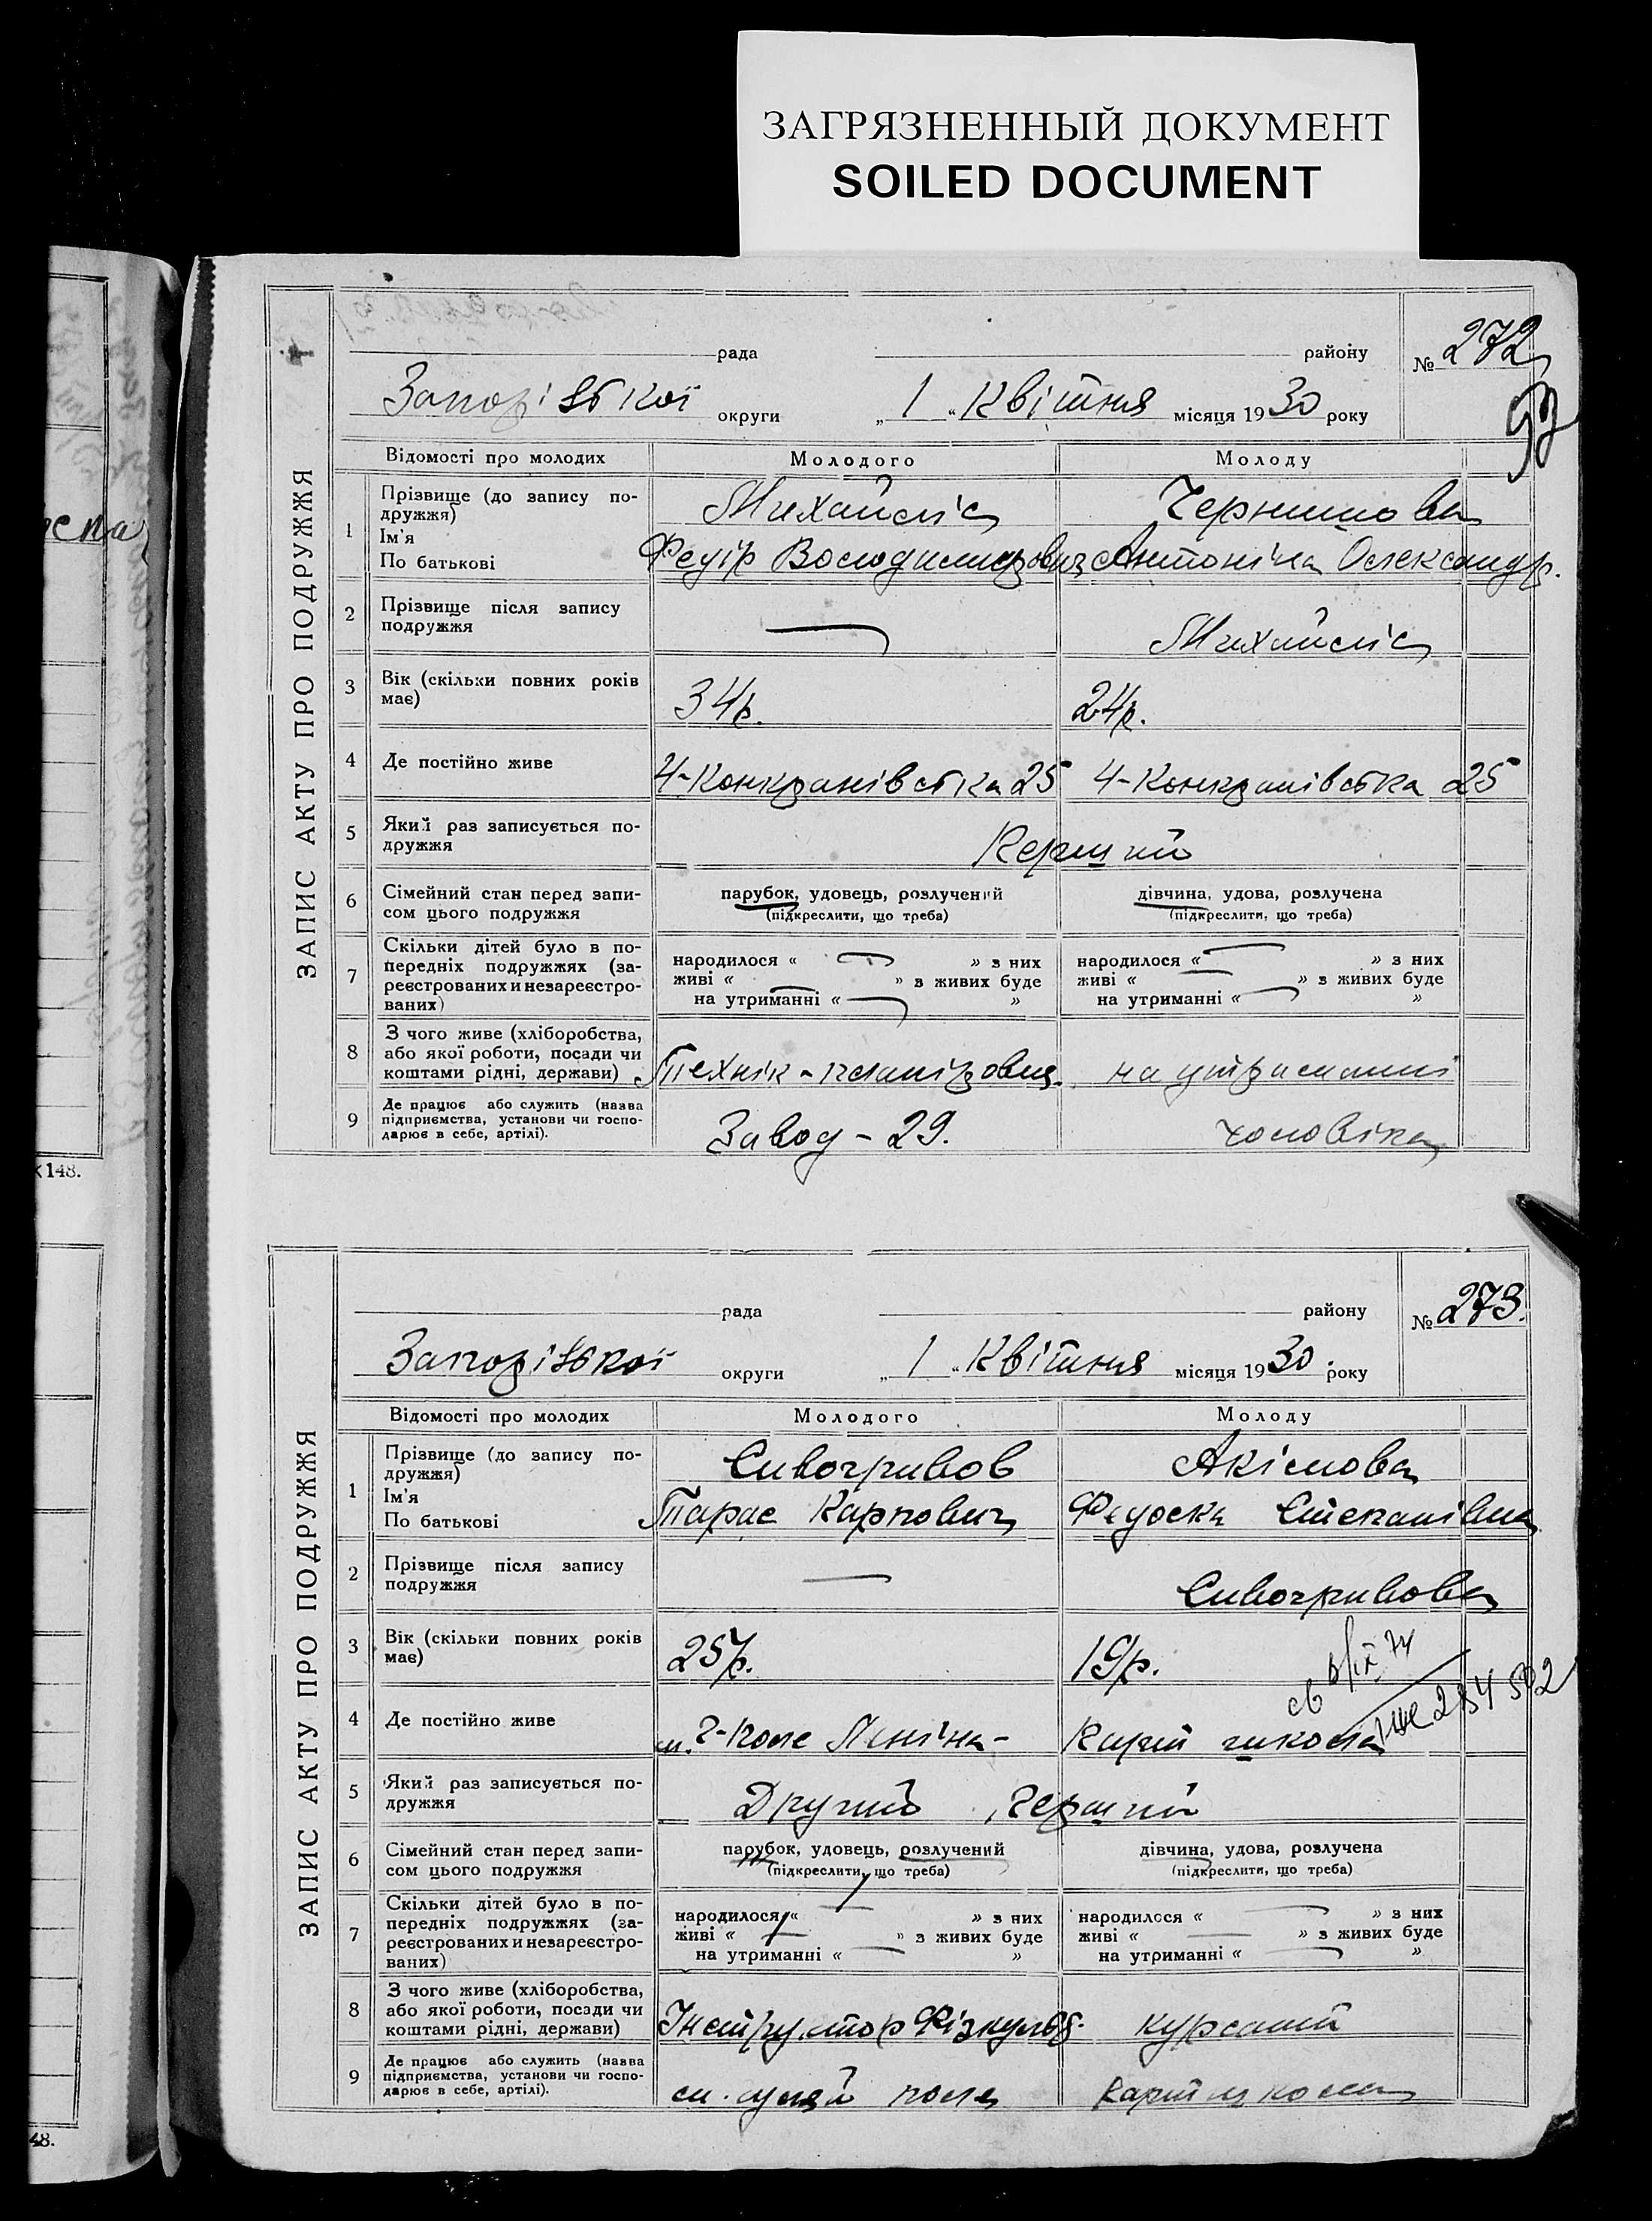 ЗАГРЯЗНЕННЫЙ ДОКУМЕНТ
SOILED DOCUMENT
ЗАПИС АКТУ ПРО ПОДРУЖЖЯ
рада району № 272
93
Запорізької округи „ 1 “ Квітня місяця 1930 року
Відомості про молодих Молодого Молоду
1 Прізвище (до запису по-
дружжя)
Михайліс Чернишова
Ім'я
По батькові
Федір Володимирович Антоніна Олександр.
2 Прізвище після запису
подружжя
— Михайліс
3 Вік (скільки повних років
має)
34р. 24р.
4 Де постійно живе
25 25
5 Який раз записується по-
дружжя
Перший
6 Сімейний стан перед запи-
сом цього подружжя
парубок, удовець, розлучений дівчина, удова, розлучена
(підкреслити, що треба) (підкреслити, що треба)
7 Скільки дітей було в по-
передніх подружжях (за-
реєстрованих и незареєстро-
ваних)
народилося « — » з них народилося « — » з них
живі « — » з живих буде живі « — » з живих буде
на утриманні « — » на утриманні « — »
8 З чого живе (хліборобства,
або якої роботи, посади чи
коштами рідні, держави)
Технік - на утриманні
9 Де працює або служить (назва
підприємства, установи чи госпо-
дарює в себе, артілі).
Завод - 29. чоловіка
148.
ЗАПИС АКТУ ПРО ПОДРУЖЖЯ
рада району № 273.
Запорізької округи „ 1 “ Квітня місяця 1930 року
Відомості про молодих Молодого Молоду
1 Прізвище (до запису по-
дружжя)
Сивогривов Акімова
Ім'я
По батькові
Тарас Карпович Федоска Степанівна
2 Прізвище після запису
подружжя
— Сивогривова
3 Вік (скільки повних років
має)
25р. 19р.
4 Де постійно живе
Леніна - школа
5 Який раз записується по-
дружжя
Другий , перший
6 Сімейний стан перед запи-
сом цього подружжя
парубок, удовець, розлучений дівчина, удова, розлучена
(підкреслити, що треба) (підкреслити, що треба)
7 Скільки дітей було в по-
передніх подружжях (за-
реєстрованих и незареєстро-
ваних)
народилося « — » з них народилося « — » з них
живі « — » з живих буде живі « — » з живих буде
на утриманні « — » на утриманні « — »
8 З чого живе (хліборобства,
або якої роботи, посади чи
коштами рідні, держави)
Інструктор Фізкульт. курсант
9 Де працює або служить (назва
підприємства, установи чи госпо-
дарює в себе, артілі).
48.